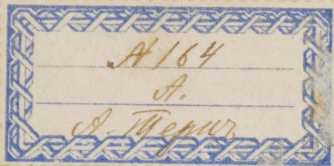 № 164
А.
А. Терич